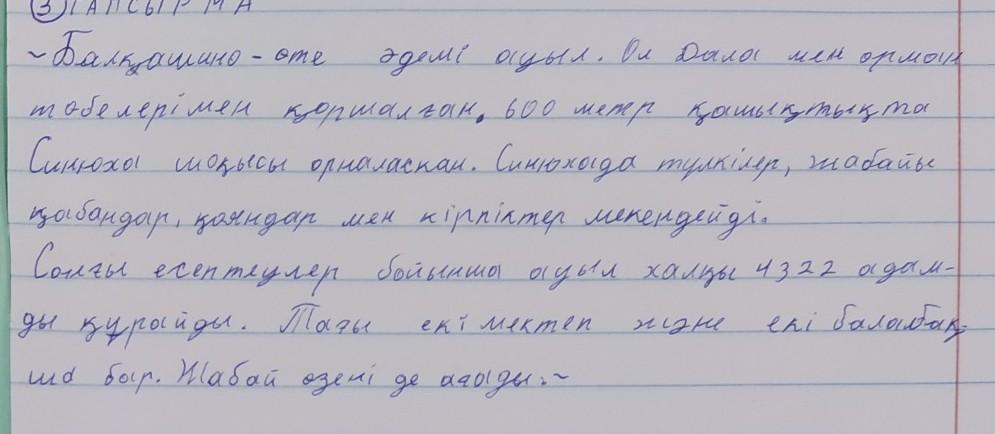 ③ ТАПСЫРМА
~Балқашино - өте әдемі ауыл. Ол Дала мен орман
төбелерімен қоршалған. 600 метр қашықтықта
Синюха шоқысы орналаскан. Синюхада түлкілер, жабайы
қабандар, қояндар мен кірпіктер мекендейді.
Соңғы есептеулер бойынша ауыл халқы 4322 адам-
ды құрайды. Тағы екі мектеп және екі балабақ-
ша бар. Жабай өзені де ағады.~